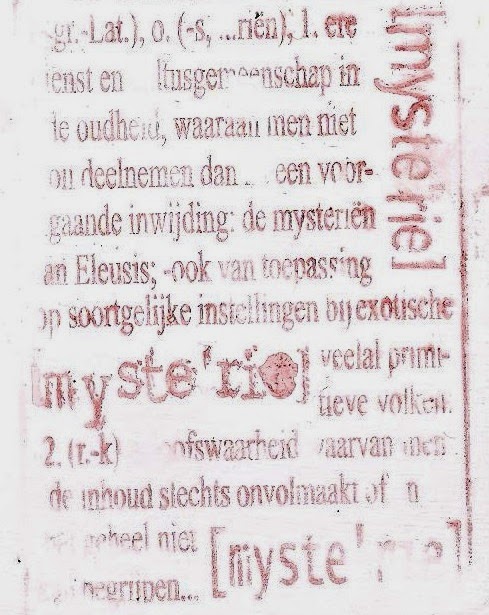 gr.-Lat.), o. (-s, ...riën), 1. ere
ienst en ltusgemeenschap in
de oudheid, waaraan men niet
ou deelnemen dan een voor-
gaande inwijding: de mysteriën
an Eleusis; -ook van toepassing
op soortgelijke instellingen bij exotische
veelal primi-
tieve volken.
[myste'rie]
2. (r.-k) oofswaarheid waarvan men
de inhoud slechts onvolmaakt of n
geheel niet
begrijpen...
[myste'rie]
[myste'rie]